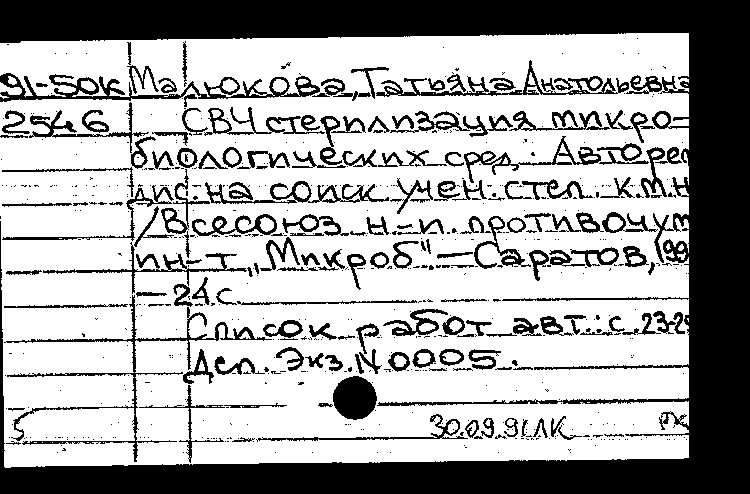 91-50к Малюкова, Татьяна Анатольевна
2546 СВЧ стерилизация микро-
биологических сред: Авторе
дис. на соиск. учен. степ. к.м.н
/Всесоюз. н.-и. противочум
ин-т „Микроб". — Саратов, 199
— 24 с.
Список работ авт.: с. 23-2
Деп. Экз. N 0005.
5 30.09.91 ЛК